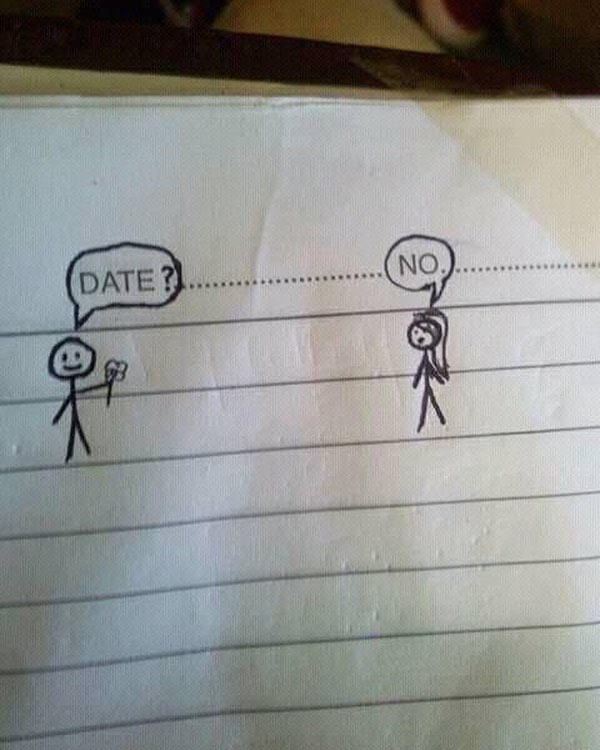 DATE?.............................. NO. .....................